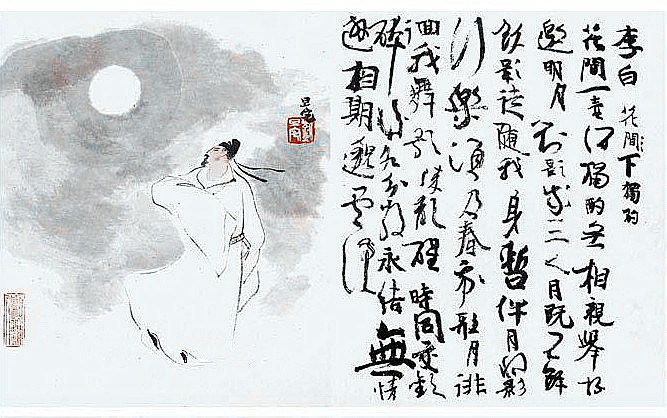 李白花間下獨酌
花間一壺酒獨酌無相親舉杯
邀明月對影成三人月既不解
飲影徒隨我身暫伴月將影
行樂須及春我歌月徘
徊我舞影亂醒時同交歡
醉後各分散永結無情
遊相期邈雲漢